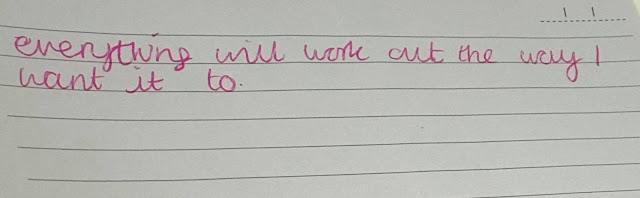 everything will work out the way I
want it to.